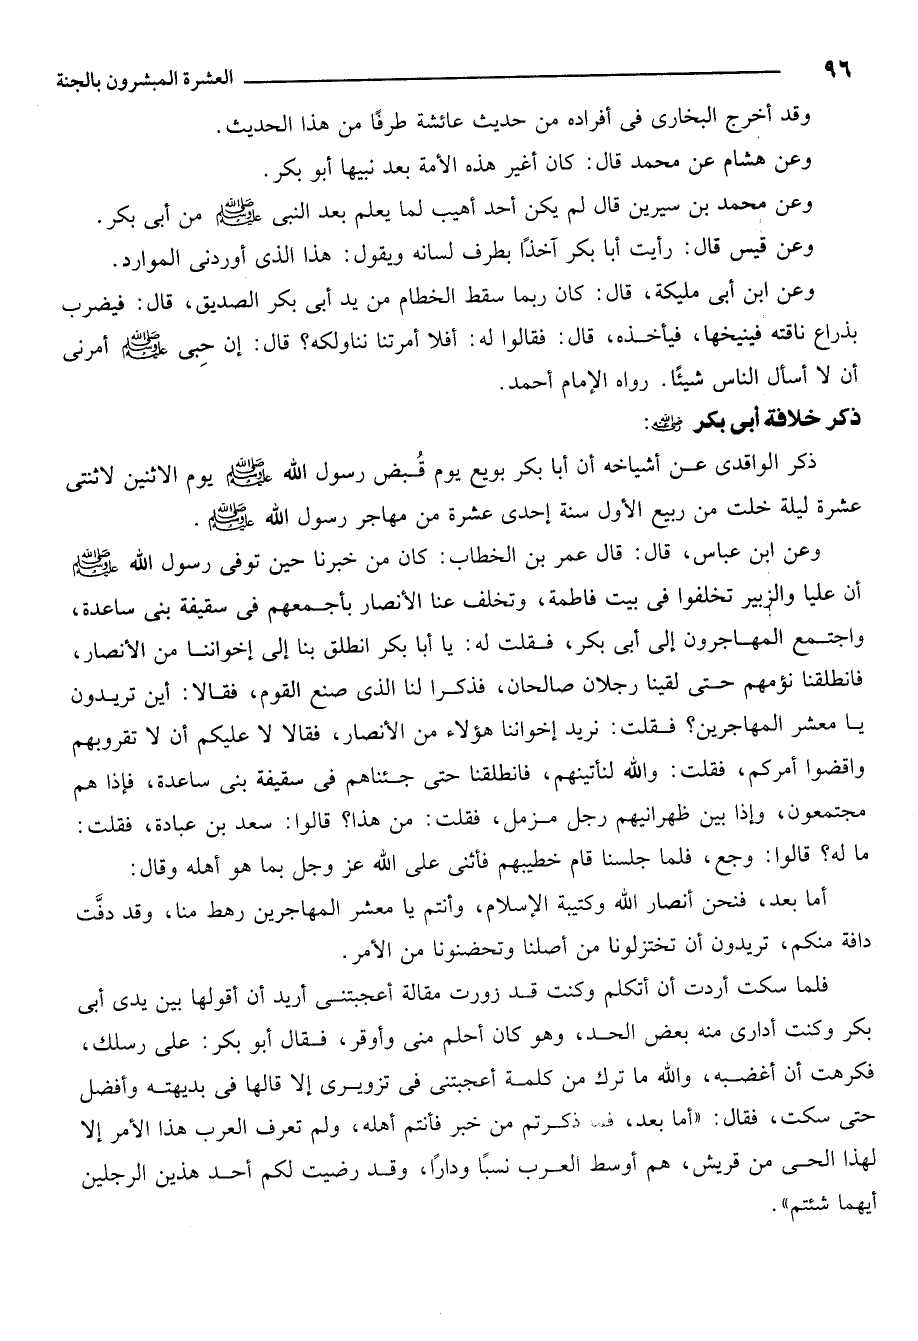 ٩٦ العشرة المبشرون بالجنة
وقد أخرج البخارى فى أفراده من حديث عائشة طرفًا من هذا الحديث.
وعن هشام عن محمد قال: كان أغير هذه الأمة بعد نبيها أبو بكر.
وعن محمد بن سيرين قال لم يكن أحد أهيب لما يعلم بعد النبى ﷺ من أبى بكر.
وعن قيس قال: رأيت أبا بكر آخذًا بطرف لسانه ويقول: هذا الذى أوردنى الموارد.
وعن ابن أبى مليكة، قال: كان ربما سقط الخطام من يد أبى بكر الصديق، قال: فيضرب
بذراع ناقته فينيخها، فيأخذه، قال: فقالوا له: أفلا أمرتنا نناولكه؟ قال: إن حِبى ﷺ أمرنى
أن لا أسأل الناس شيئًا. رواه الإمام أحمد.
ذكر خلافة أبى بكر رضي الله عنه:
ذكر الواقدى عن أشياخه أن أبا بكر بويع يوم قُبض رسول الله ﷺ يوم الاثنين لاثنتى
عشرة ليلة خلت من ربيع الأول سنة إحدى عشرة من مهاجر رسول الله ﷺ.
وعن ابن عباس، قال: قال عمر بن الخطاب: كان من خبرنا حين توفى رسول الله ﷺ
أن عليا والزبير تخلفوا فى بيت فاطمة، وتخلف عنا الأنصار بأجمعهم فى سقيفة بنى ساعدة،
واجتمع المهاجرون إلى أبى بكر، فقلت له: يا أبا بكر انطلق بنا إلى إخواننا من الأنصار،
فانطلقنا نؤمهم حتى لقينا رجلان صالحان، فذكرا لنا الذى صنع القوم، فقالا: أين تريدون
يا معشر المهاجرين؟ فقلت: نريد إخواننا هؤلاء من الأنصار، فقالا لا عليكم أن لا تقروبهم
واقضوا أمركم، فقلت: والله لنأتينهم، فانطلقنا حتى جئناهم فى سقيفة بنى ساعدة، فإذا هم
مجتمعون، وإذا بين ظهرانيهم رجل مزمل، فقلت: من هذا؟ قالوا: سعد بن عبادة، فقلت:
ما له؟ قالوا: وجع، فلما جلسنا قام خطيبهم فأثنى على الله عز وجل بما هو أهله وقال:
أما بعد، فنحن أنصار الله وكتيبة الإسلام، وأنتم يا معشر المهاجرين رهط منا، وقد دفَّت
دافة منكم، تريدون أن تختزلونا من أصلنا وتحضنونا من الأمر.
فلما سكت أردت أن أتكلم وكنت قد زورت مقالة أعجبتنى أريد أن أقولها بين يدى أبى
بكر وكنت أدارى منه بعض الحد، وهو كان أحلم منى وأوقر، فقال أبو بكر: على رسلك،
فكرهت أن أغضبه، والله ما ترك من كلمة أعجبتنى فى تزويرى إلا قالها فى بديهته وأفضل
حتى سكت، فقال: «أما بعد، ذكرتم من خبر فأنتم أهله، ولم تعرف العرب هذا الأمر إلا
لهذا الحى من قريش، هم أوسط العرب نسبًا ودارًا، وقد رضيت لكم أحد هذين الرجلين
أيهما شئتم».